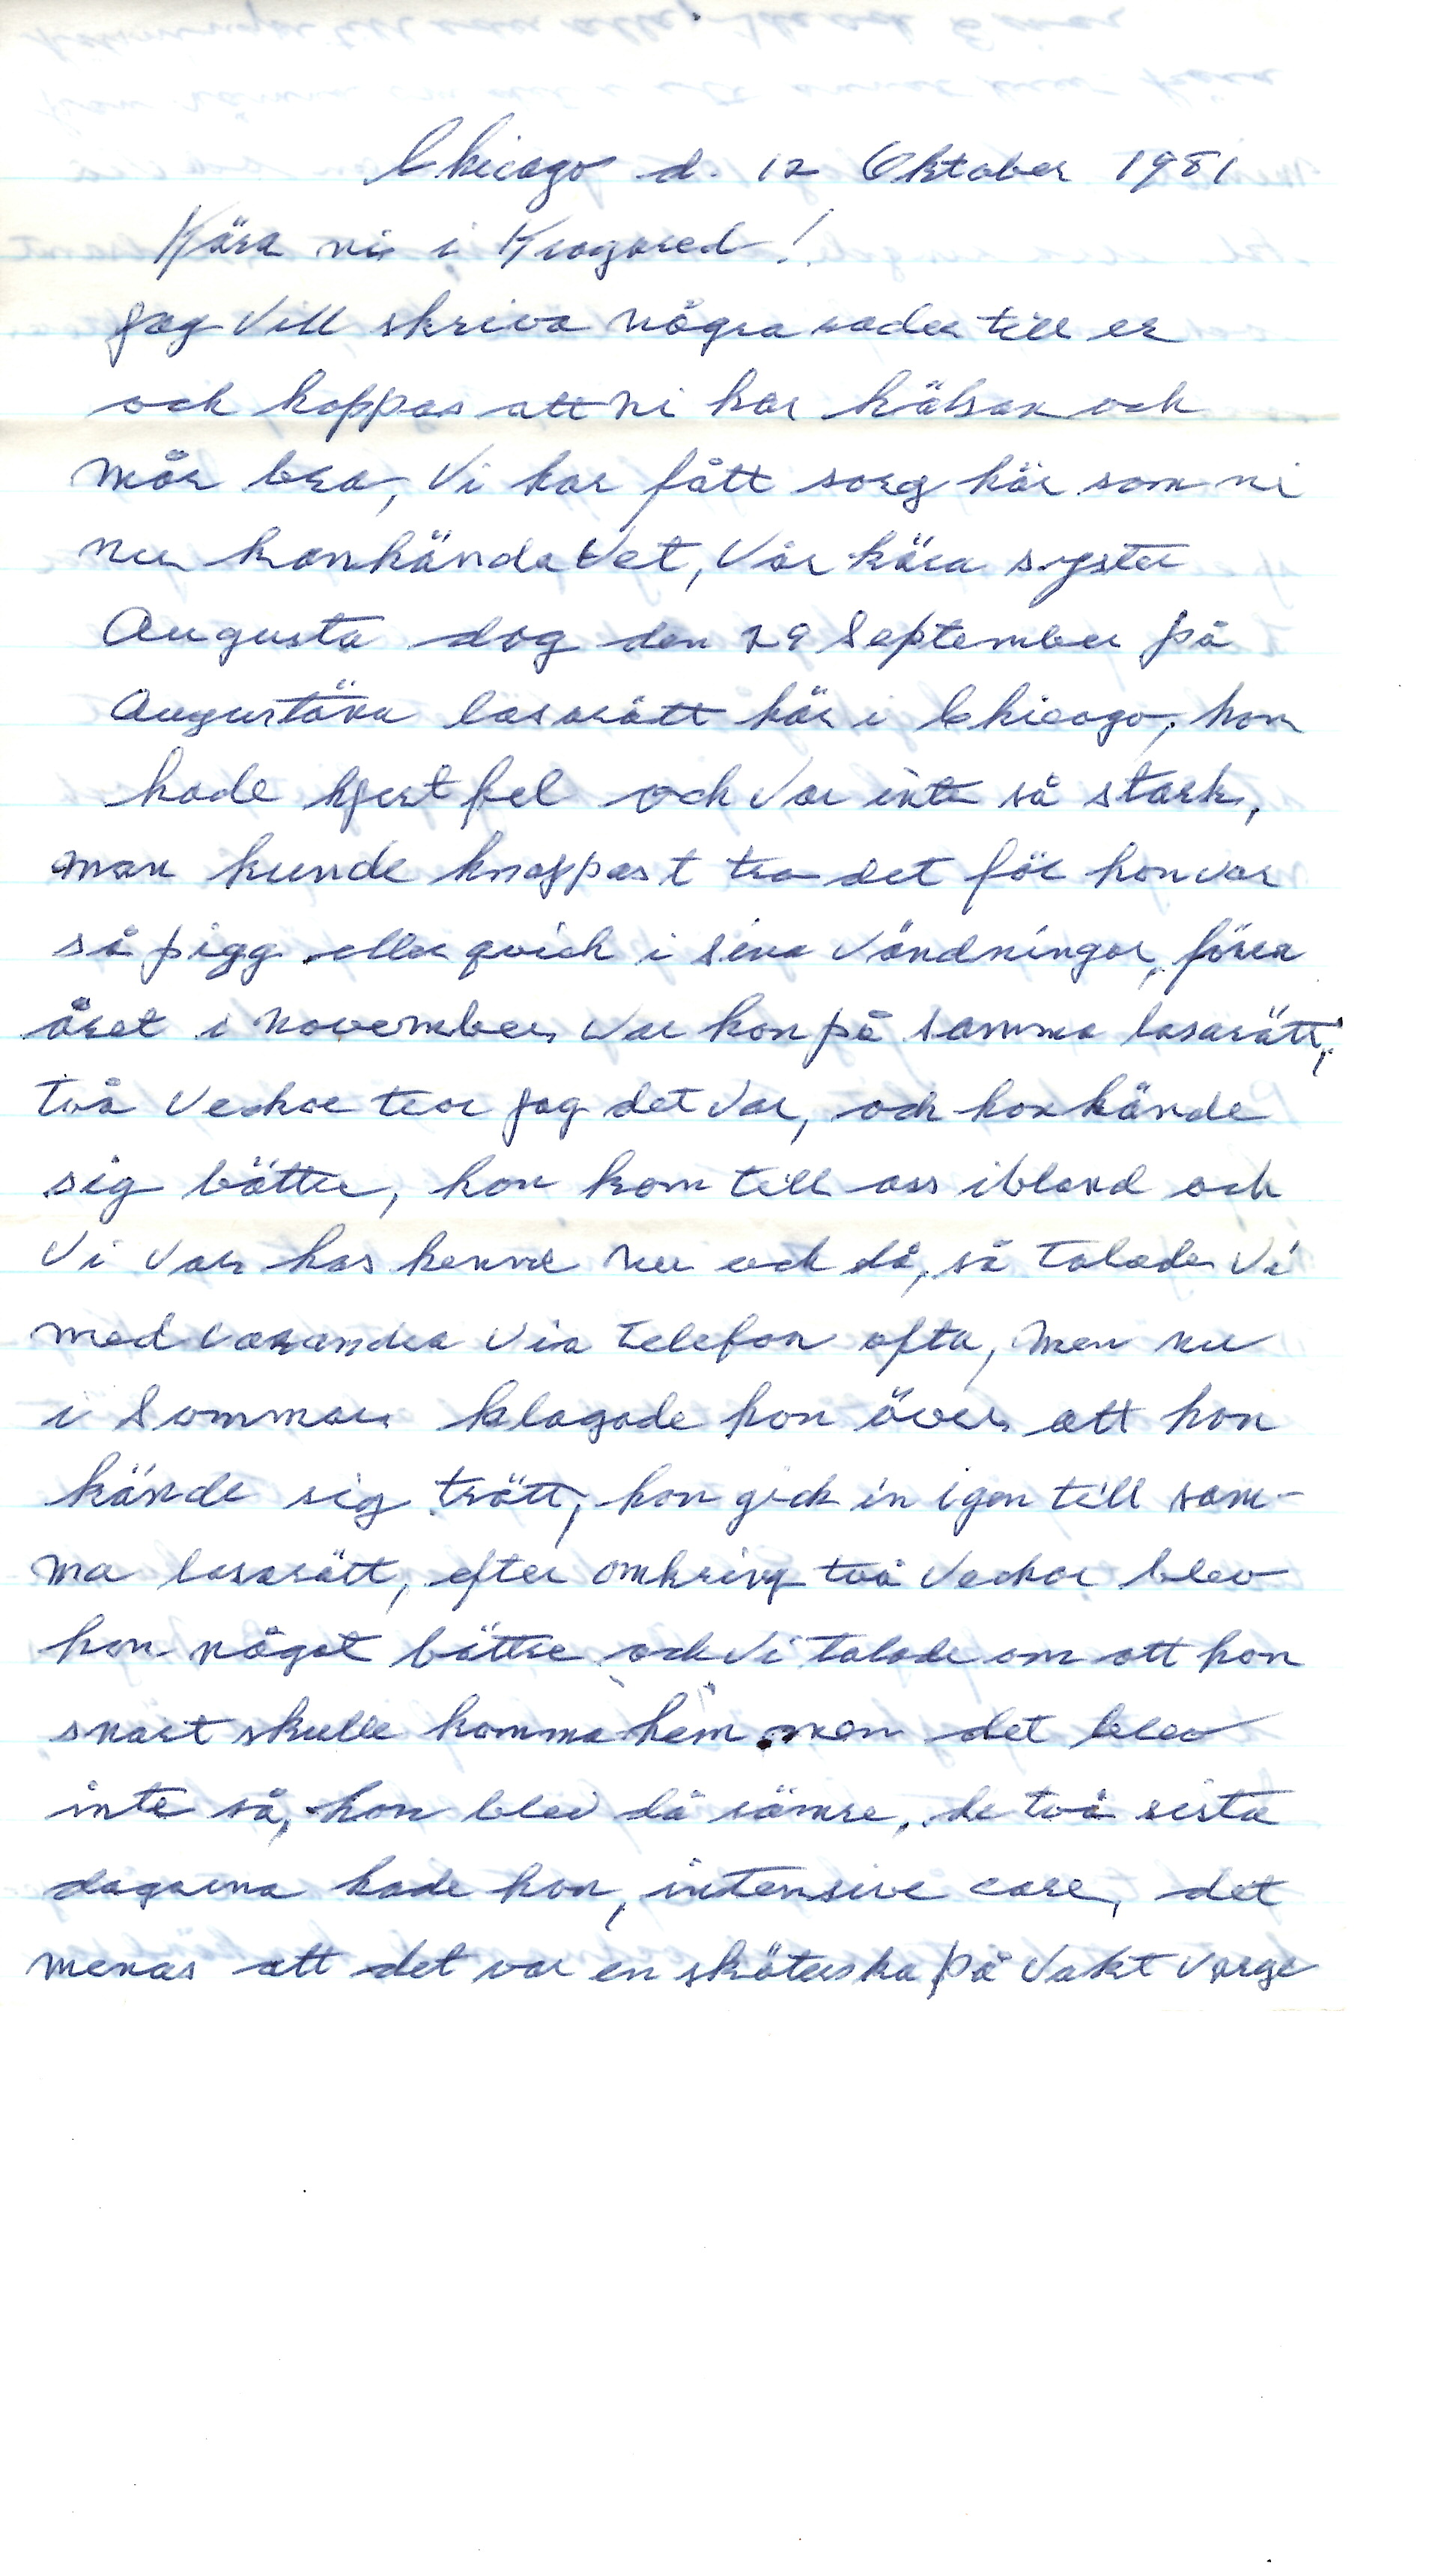 Chicago d. 12 Oktober 1981
Kära ni i Krogared!
Jag vill skriva några rader till er
och hoppas att ni har hälsan och
mår bra, Vi har fått sorg här som ni
nu kanhända vet, Vår kära syster
Augusta dog den 29 September på
Augustäna lasarätt här i Chicago, hon
hade hjertfel och var inte så stark,
man kunde knappast tro det för hon var
så pigg eller qvick i sina vändningar, förra
året i november var hon på samma lasarätt,
två veckor tror jag det var, och hon kände
sig bättre, hon kom till oss ibland och
Vi var hos henne nu och då, så talade Vi
med varandra via telefon ofta, men nu
i Sommar klagade hon över att hon
kände sig trött, hon gick in igen till sam-
ma lasarätt, efter omkring två veckor blev
hon något bättre och Vi talade om att hon
snart skulle komma hem. men det blev
inte så, hon blev då sämre, de två sista
dagarna hade hon, intensive care, det
menas att det var en sköterska på vakt varge